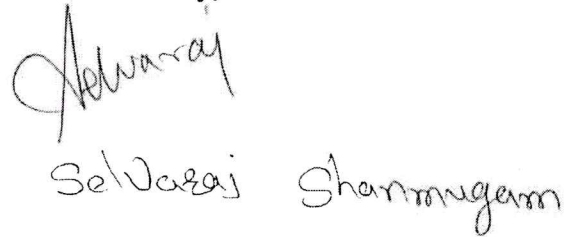 Selvaraj
Selvaraj Shanmugam